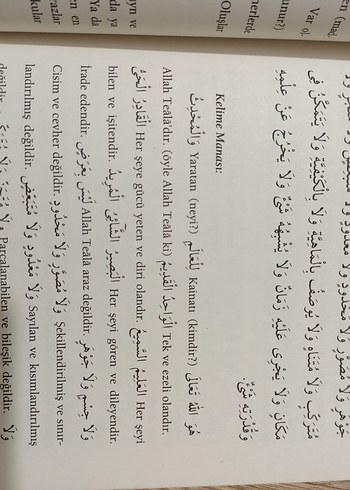 جَوْهَرٍ وَلَا مُصَوَّرٍ وَلَا مَحْدُودٍ وَلَا مَعْدُودٍ وَلَا مُتَبَعِّضٍ وَلَا
مُتَرَكِّبٍ وَلَا مُتَنَاهٍ وَلَا يُوصَفُ بِالْمَاهِيَّةِ وَلَا بِالْكَيْفِيَّةِ وَلَا يَتَمَكَّنُ فِى
مَكَانٍ وَلَا يَجْرِى عَلَيْهِ زَمَانٌ وَلَا يُشْبِهُهُ شَىْءٌ وَلَا يَخْرُجُ عَنْ عِلْمِهِ
وَقُدْرَتِهِ شَىْءٌ.
Kelime Manası:
وَالْمُحْدِثُ Yaratan (neyi?) لِلْعَالَمِ Kainatı (kimdir?) هُوَ اللّٰهُ تَعَالَى
Allah Teâlâ'dır. (öyle Allah Teâlâ ki) الْوَاحِدُ الْقَدِيمُ Tek ve ezeli olandır.
الْقَادِرُ الْحَىُّ Her şeye gücü yeten ve diri olandır. الْعَلِيمُ السَّمِيعُ Her şeyi
bilen ve işitendir. الْبَصِيرُ الشَّائِى الْمُرِيدُ Her şeyi gören ve dileyendir.
İrade edendir. لَيْسَ بِعَرَضٍ Allah Teâlâ araz değildir. وَلَا جِسْمٍ وَلَا جَوْهَرٍ
Cisim ve cevher değildir. وَلَا مُصَوَّرٍ وَلَا مَحْدُودٍ Şekillendirilmiş ve sınır-
landırılmış değildir. وَلَا مَعْدُودٍ وَلَا مُتَبَعِّضٍ Sayılan ve kısımlandırılmış
değildir. Parçalanabilen ve bileşik değildir. وَلَا
Var ol
umur?)
nerlerde
Oluşlar
yın ve
da ya
Ya da
en en
razlar
kular